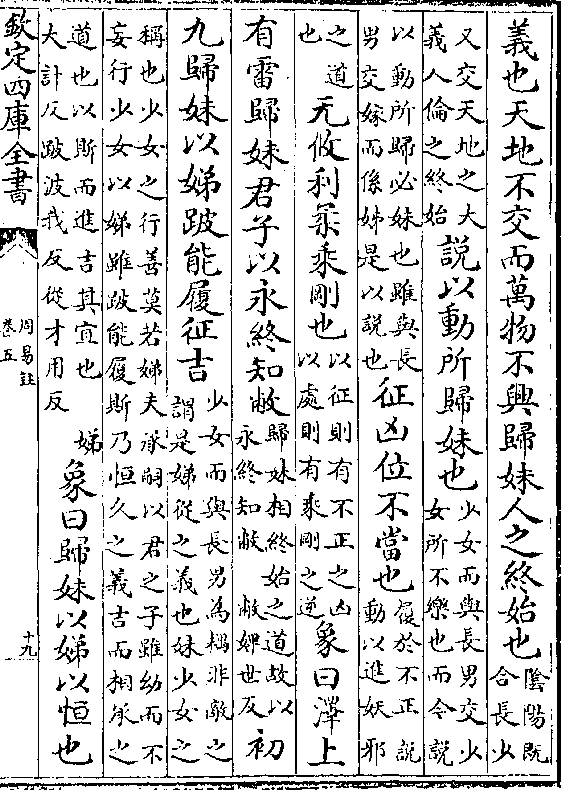 義也天地不交而萬物不興歸妹人之終始也陰陽既
合長少
又交天地之大
義人倫之終始
說以動所歸妹也
少女而與長男交少
女所不樂也而令說
以動所歸必妹也雖與長
男交嫁而係娣是以說也
征凶位不當也
履於不正說
動以進妖邪
之道
也
无攸利柔乘剛也
以征則有不正之凶
以處則有乘剛之逆
象曰澤上
有雷歸妹君子以永終知敝
歸妹相終始之道故以
永終知敝 敝婢世反
初
九歸妹以娣跛能履征吉
少女而與長男為耦非敵之
謂是娣從之義也妹少女之
稱也少女之行善莫若娣夫承嗣以君之子雖幼而不
妄行少女以娣雖跛能履斯乃恒久之義吉而相承之
道也以斯而進吉其宜也 娣
大計反跛波我反從才用反
象曰歸妹以娣以恒也
欽定四庫全書
周易註
卷五
十九